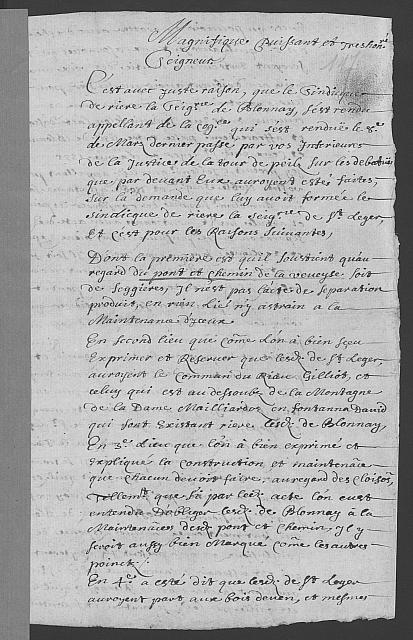 Magnifique Puissant et treshon.ré
Seigneur
C'est avec juste raison, que le Sindicque
de riere la Seig.rie de Blonnay, s'est rendu
appellant de la cog.ce qui s'est rendue le
de Mars dernier passé par vos Inferieurs
de la Justice de la tour de peils sur les debatues
que par devant Eux auroyent estés faites,
sur la demande que luy avoit formée le
sindicque de riere la seig.rie de S.t Leger,
Et c'est pour les Raisons suivantes,
Dont la premiere est qu'il soustient qu'au
regard du pont et chemin de la veveyse soit
de feggieres, Il n'est pas l'acte de separation
produit, en rien lié n'y astrain a la
Maintenance d'iceux.
En second lieu que côme l'on à bien sceu
Exprimer et Reserver que lesd. de S.t Leger,
auroyent le Commun du Riau Gilliot, et
celuy qui est au dessoubz de la Montagne
de la Dame Mailliardoz en fontanna David
qui sont Existant riere lesd. de Blonnay,
En 3.e lieu que l'on à bien exprimé et
Expliqué la construction et maintenance
que chacun devoit faire, au regard des Cloisons,
Tellem.t que si par led. acte l'on eust
entendu D'obliger lesd. de Blonnay à la
Maintenance desd. pont et Chemin, Il y
seroit aussy bien Marqué côme les autres
poinct
En 4.e a esté dit que lesd. de S.t Leger
auroyent part aux bois deven, et mesmes